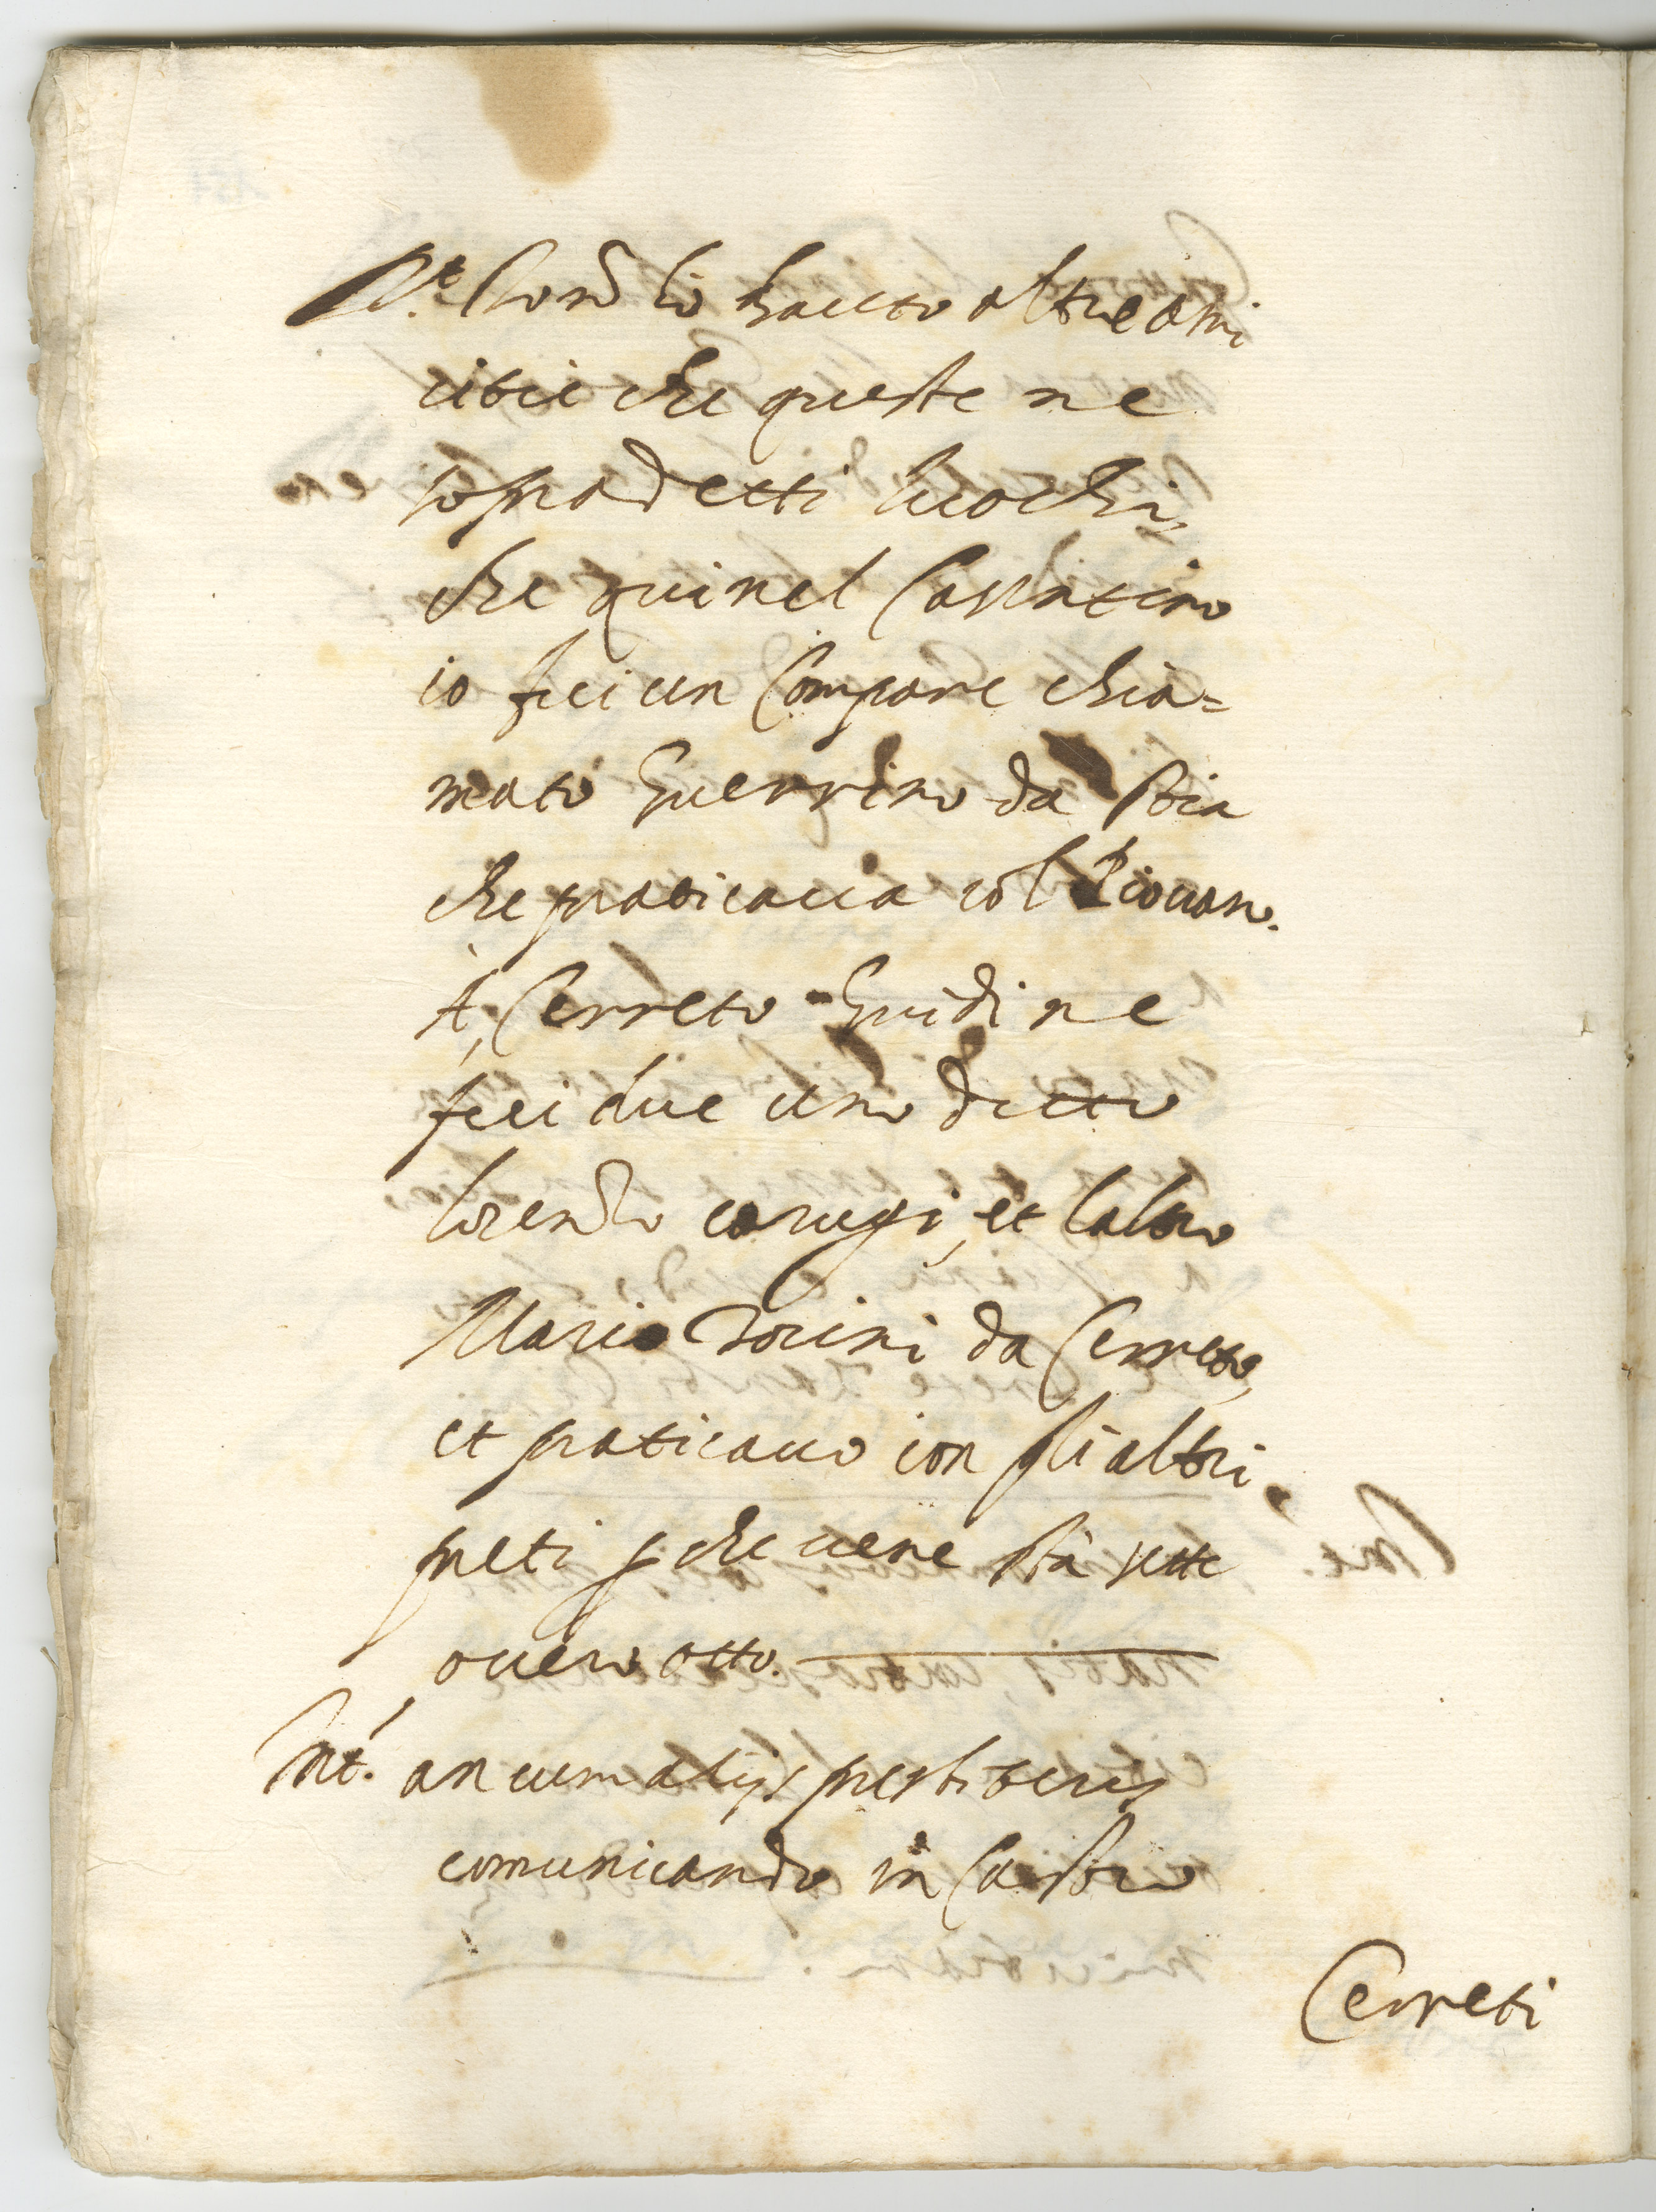 R.t Non ho hauuto altre ami
citie che queste ne
sopradetti luochi,
che qui nel Casentino
io feci un Compare chia=
mato Guerrino da Stia
che praticaua col Piouano.
A, Cerreto Guidi ne
feci due uno detto
lorenzo carugi, et laltro
Mario Torini da Cerreto,
et praticauo con gli altri
preti p che uene sta sette
ouero otto.
Int. an cum alijs presbiteris
comunicando in Castro
Cerreti